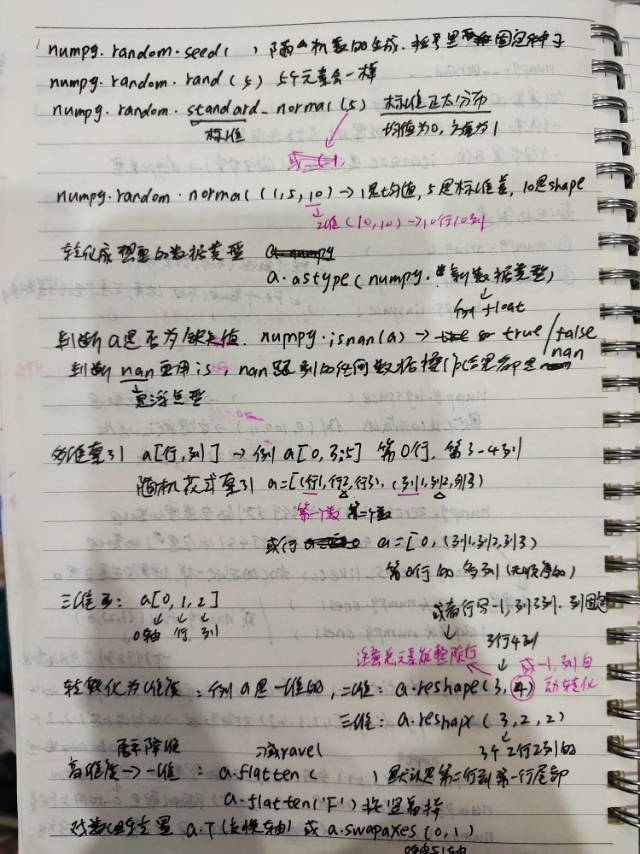 numpy.random.seed( ) 随机数的生成.括号里 固定种子
numpy.random.rand(5) 5个元素会一样
numpy.random.standard_normal(5) 标准正太分布
标准 均值为0,方差为1
numpy.random.normal(1,5,10)→1是均值,5是标准差,10是shape
二维(10,10)→10行10列
转化成想要的数据类型
a.astype(numpy.新数据类型)
例float
判断a是否为缺失值.numpy.isnan(a)→ true/false
判断nan应用is,nan跟别的任何数据操作结果都是nan
是浮点型
多维索引 a[行,列]→例a[0,3:5] 第0行,第3-4列
随机花式索引 a=[(行1,行2,行3),(列1,列2,列3)
第一个数 第二个数
或行 a=[0,(列1,列2,列3)
第0行的多列
三维:a[0,1,2]
0轴 行 列
或者行写-1,列
3行4列
或-1,列自
动转化
转化为维度:例a是一维的,二维:a.reshape(3,4)
三维:a.reshape(3,2,2)
展示降维 或ravel 3个2行2列的
高维度→一维:a.flatten( ) 默认是第二行到第一行尾部
a.flatten('F')按竖着排
转置 a.T(行换轴)或a.swapaxes(0,1)